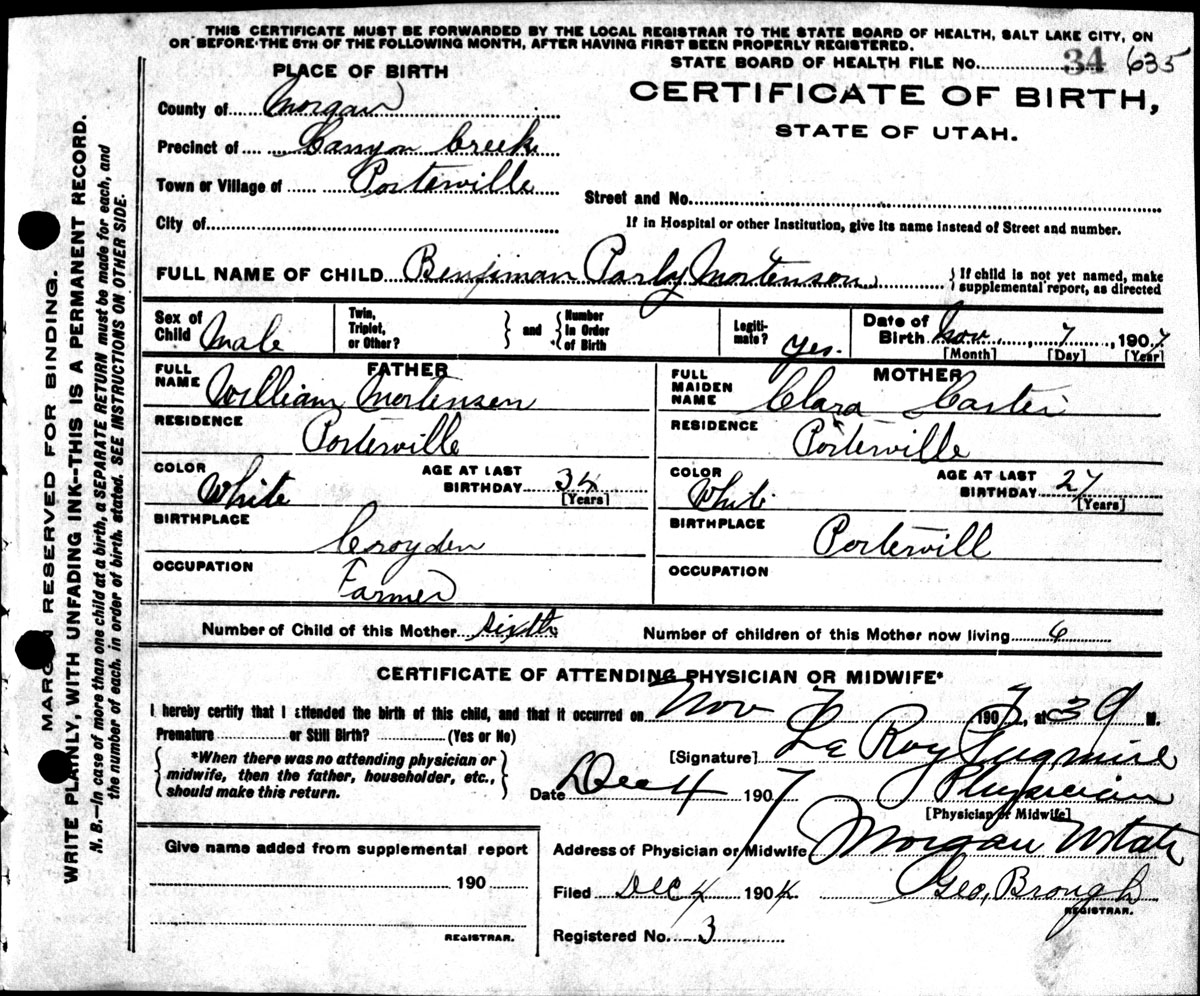 THIS CERTIFICATE MUST BE FORWARDED BY THE LOCAL REGISTRAR TO THE STATE BOARD OF HEALTH, SALT LAKE CITY, ON
OR BEFORE THE 5TH OF THE FOLLOWING MONTH, AFTER HAVING FIRST BEEN PROPERLY REGISTERED.
STATE BOARD OF HEALTH FILE NO. 34 635
PLACE OF BIRTH
CERTIFICATE OF BIRTH,
STATE OF UTAH.
County of Morgan
Precinct of Canyon Creek
Town or Village of Porterville
Street and No.
City of
If in Hospital or other Institution, give its name instead of Street and number.
FULL NAME OF CHILD Benjiman Parly Mortenson
} If child is not yet named, make supplemental report, as directed
Sex of Child Male
Twin, Triplet, or Other?
} and {
Number in Order of Birth
Legitimate? Yes.
Date of Birth Nov. 7, 1907
[Month] [Day] [Year]
FATHER
FULL NAME William Mortensen
RESIDENCE
Porterville
COLOR
White
AGE AT LAST BIRTHDAY 34
[Years]
BIRTHPLACE
Croyden
OCCUPATION
Farmer
MOTHER
FULL MAIDEN NAME Clara Carter
RESIDENCE
Porterville
COLOR
White
AGE AT LAST BIRTHDAY 27
[Years]
BIRTHPLACE
Portervill
OCCUPATION
Number of Child of this Mother sixth
Number of children of this Mother now living 6
CERTIFICATE OF ATTENDING PHYSICIAN OR MIDWIFE*
I hereby certify that I attended the birth of this child, and that it occurred on Nov 7 1907, at 3 9 M.
Premature or Still Birth? (Yes or No)
{ *When there was no attending physician or midwife, then the father, householder, etc., should make this return. }
[Signature] La Roy Pugmire
Date Dec 4 1907
Physician
[Physician or Midwife]
Address of Physician or Midwife Morgan Utah
Give name added from supplemental report
190
REGISTRAR.
Filed Dec 4 1904
Geo, Brough
REGISTRAR.
Registered No. 3
MARGIN RESERVED FOR BINDING.
WRITE PLAINLY, WITH UNFADING INK--THIS IS A PERMANENT RECORD.
N. B.--In case of more than one child at a birth, a SEPARATE RETURN must be made for each, and
the number of each, in order of birth, stated. SEE INSTRUCTIONS ON OTHER SIDE.